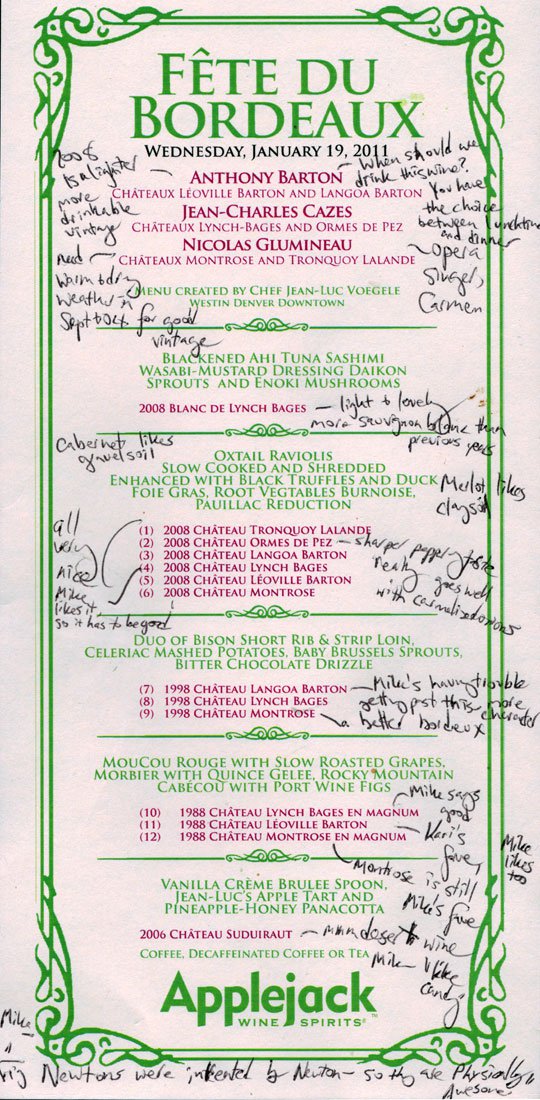 FÊTE DU
BORDEAUX
WEDNESDAY, JANUARY 19, 2011
2008
is a lighter
more
drinkable
vintage
ANTHONY BARTON
CHÂTEAUX LÉOVILLE BARTON AND LANGOA BARTON
JEAN-CHARLES CAZES
CHÂTEAUX LYNCH-BAGES AND ORMES DE PEZ
NICOLAS GLUMINEAU
CHÂTEAUX MONTROSE AND TRONQUOY LALANDE
When should we
drink this wine?
You have
the choice
between lunchtime
and dinner
Opera
singer,
Carmen
need
warm & dry
weather in
Sept & Oct for good
vintage
MENU CREATED BY CHEF JEAN-LUC VOEGELE
WESTIN DENVER DOWNTOWN
BLACKENED AHI TUNA SASHIMI
WASABI-MUSTARD DRESSING DAIKON
SPROUTS AND ENOKI MUSHROOMS
2008 BLANC DE LYNCH BAGES
light & lovely
more sauvignon blanc than
previous years
Cabernet likes
gravel soil
OXTAIL RAVIOLIS
SLOW COOKED AND SHREDDED
ENHANCED WITH BLACK TRUFFLES AND DUCK
FOIE GRAS, ROOT VEGTABLES BURNOISE,
PAUILLAC REDUCTION
Merlot likes
clay soil
(1) 2008 CHÂTEAU TRONQUOY LALANDE
(2) 2008 CHÂTEAU ORMES DE PEZ
(3) 2008 CHÂTEAU LANGOA BARTON
(4) 2008 CHÂTEAU LYNCH BAGES
(5) 2008 CHÂTEAU LÉOVILLE BARTON
(6) 2008 CHÂTEAU MONTROSE
all
very
nice
Mike
likes it,
so it has to be good!
sharper peppery taste
goes well
with carmalized onions
DUO OF BISON SHORT RIB & STRIP LOIN,
CELERIAC MASHED POTATOES, BABY BRUSSELS SPROUTS,
BITTER CHOCOLATE DRIZZLE
(7) 1998 CHÂTEAU LANGOA BARTON
(8) 1998 CHÂTEAU LYNCH BAGES
(9) 1998 CHÂTEAU MONTROSE
Mike's having trouble
getting past this more
character
a better bordeux
MOUCOU ROUGE WITH SLOW ROASTED GRAPES,
MORBIER WITH QUINCE GELEE, ROCKY MOUNTAIN
CABÉCOU WITH PORT WINE FIGS
(10) 1988 CHÂTEAU LYNCH BAGES EN MAGNUM
(11) 1988 CHÂTEAU LÉOVILLE BARTON
(12) 1988 CHÂTEAU MONTROSE EN MAGNUM
Mike says
good
Kari's
fave,
Mike
likes
too
Montrose is still
Mike's fave
VANILLA CRÈME BRULEE SPOON,
JEAN-LUC'S APPLE TART AND
PINEAPPLE-HONEY PANACOTTA
2006 CHÂTEAU SUDUIRAUT
wine
Mike
candy
COFFEE, DECAFFEINATED COFFEE OR TEA
Applejack
WINE & SPIRITS
Mike
"
Fig Newtons were invented by Newton - so they are Physically
Awesome"